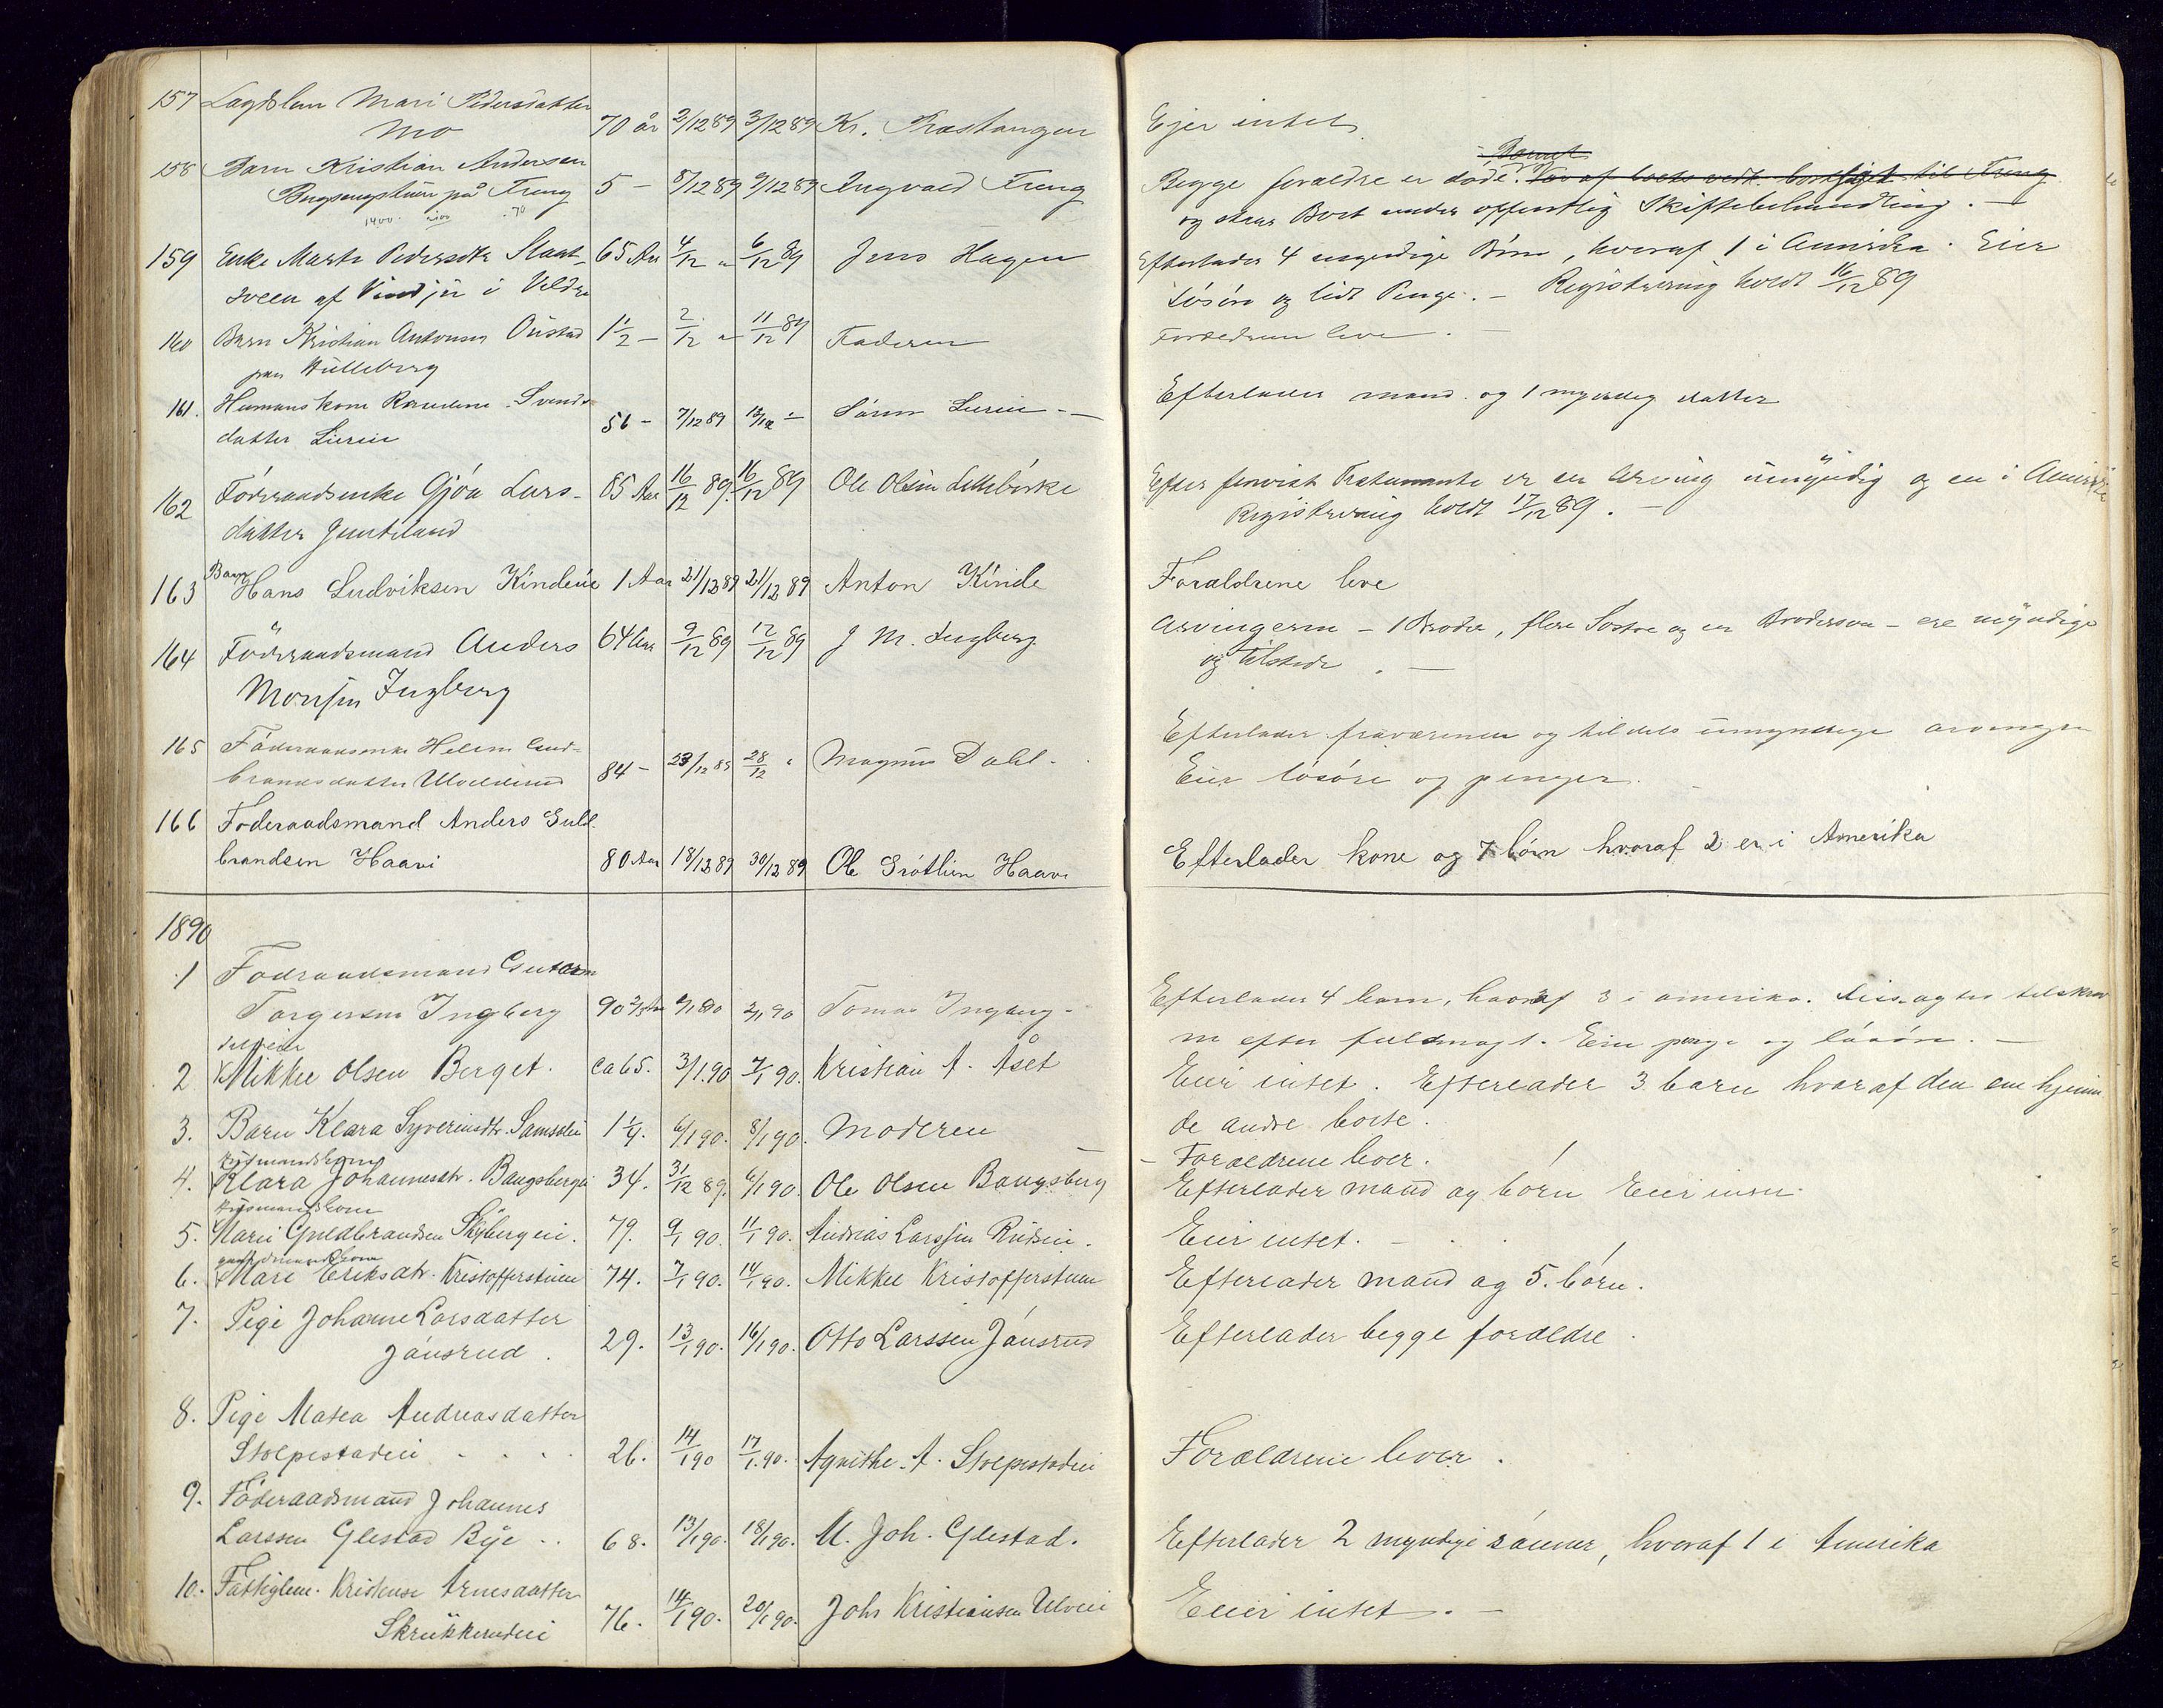 157 Lægdslem Mari Pedersdatter
Mo 70 år 2/12 89 3/12 89 Kr. Præstangen Ejer intet
158 Barn Kristian Andersen
Barnet
5 - 8/12 89 9/12 89 Ingvald Freng Begge forældre er døde.
på Freng og staar Boet under offentlig Skiftebehandling. -
159 Enke Marte Pedersdtr 65 Aar 4/12 " 6/12 89 Jens Hagen Efterlader 4 myndige Børn, hvoraf 1 i Amerika. Eier
af i Veldre Løsøre og lidt Penge. - Registrering holdt 16/12 89
160 Barn Kristian Antonsen Onstad 1 1/2 - 2/12 " 11/12 89 Faderen Forældrene leve. -
paa Hulleberg
161. Husmandskone Svends-
datter Lierie 56 - 7/12 89 13/12 - Søren Lierie - Efterlader mand og 1 myndig datter
162 Föderaadsenke Gjøa Lars- 85 Aar 16/12 89. 16/12 89 Ole Olsen Efter Testamente er en Arving umyndig og en i Amerika
datter Registrering holdt 17/12 89. -
163 Barn Hans Ludviksen Kindeie 1 Aar 21/12 89 21/12 89 Anton Kinde Forældrene leve
164 Föderaadsmand Anders 64 Aar 9/12 89 12/12 89 J M. Ingberg Arvingerne - 1 Broder, flere Søstre og en Brodersøn - ere myndige
Monsen Ingberg og tilstede. -
165 Föderaadsenke Helene Guld-
brandsdatter 84 - 23/12 89 28/12 " Magnus Dahl. Efterlader fraværende og tildels umyndige arvinger
Eier løsøre og penger.
166 Foderaadsmand Anders Guld-
brandsen Haavi 80 Aar 18/12 89 30/12 89 Ole Grötlien Haavi Efterlader kone og 7 börn hvoraf 2 er i Amerika
1890
1 Foderaadsmand Guttorm
Torgersen Ingberg 90 2/3 Aar 2/1 90 Tomas Ingberg - Efterlader 4 barn, hvoraf 3 i amerika.
efter fuldmagt. Eier penge og løsøre. -
2 Mikkel Olsen Berget. ca 65. 3/1.90 7/1 90. Kristian A. Åset Eier intet. Efterlader 3 barn hvoraf den ene hjemme
de andre borte.
3. Barn Klara Syverinsdtr. 1 1/4. 6/1 90. 8/1 90. Moderen - Forældrene lever.
Husmandskone
4. Klara Johannesdtr. Bangsbergei 34. 31/12 89. 6/1 90. Ole Olsen Bangsberg Efterlader mand og börn
Husmandskone
5. Marie Guldbrandsen Skybergeie. 79. 9/1 90. 11/1 90. Andrias Larssen Rudeie. Eier intet. -
6. Mari Eriksdtr. Kristofferstuen 74. 7/1 90. 14/1 90. Mikkel Kristofferstuen Efterlader mand og 5. börn.
7. Pige Johanne Larsdatter
Jønsrud. 29. 13/1 90. 16/1 90. Otto Larssen Jønsrud Efterlader begge forældre.
8. Pige Matea Andreasdatter
Stolpestadeie 26. 14/1 90 17/1.90. Agnithe. A. Stolpestadeie Forældrene lever.
9. Föderaadsmand Johannes
Larssen Glestad Bye 68. 13/1 90. 18/1 90. M. Joh. Glestad. Efterlader 2 myndige sönner, hvoraf 1 i Amerika
10. Fattiglem. Kristense Arnesdatter
Skrükkerudeie 76. 14/1 90. 20/1 90. Johs Kristiansen Ulveie Eier intet. -